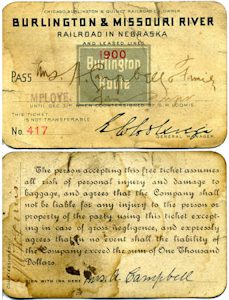 CHICAGO, BURLINGTON & QUINCY RAILROAD CO. OWNER.
BURLINGTON & MISSOURI RIVER
RAILROAD IN NEBRASKA
AND LEASED LINES
1900
PASS Mrs A Campbell
Burlington
Route
EMPLOYE
UNTIL DEC. 31st WHEN COUNTERSIGNED BY G.H. LOOMIS.
THIS TICKET
IS NOT TRANSFERABLE
No. 417
GENERAL MANAGER.
The person accepting this free ticket assumes
all risk of personal injury and damage to
baggage, and agrees that the Company shall
not be liable for any injury to the person or
property of the party using this ticket except-
ing in case of gross negligence, and expressly
agrees that in no event shall the liability of
the Company exceed the sum of One Thousand
Dollars.
SIGN WITH INK HERE Mrs. A Campbell